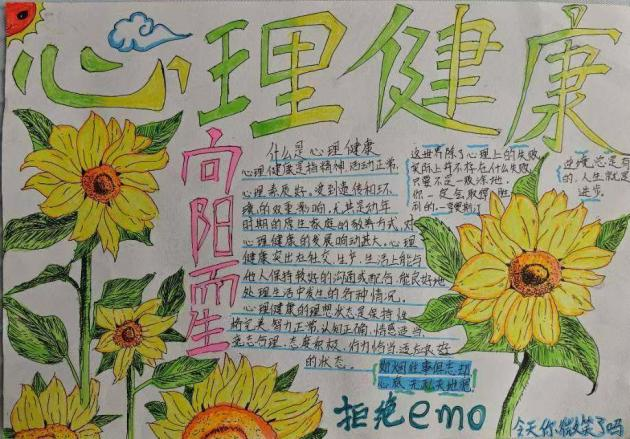 心理健康
向阳而生
什么是心理健康
心理健康是指精神、活动正常、
心理素质好。受到遗传和环
境的双重影响,尤其是幼年
时期的原生家庭的教养方式,对
心理健康的发展响动甚大。心理
健康突出在社交、生产、生活上能与
他人保持较好的沟通或配合,能良好地
处理生活中发生的各种情况。
心理健康的理想状态是保持性
格完美、智力正常、认知正确、情感适当、
意志合理、态度积极、行为恰当、适应
的状态。
这世界除了心理上的失败,
实际上并不存在什么失败,
只要不是一败涂地,
你一定会取得胜
利的。
逆境总是有
的,人生
进步。
如烟往事俱忘却
心底无私天地宽
拒绝emo
今天你微笑了吗